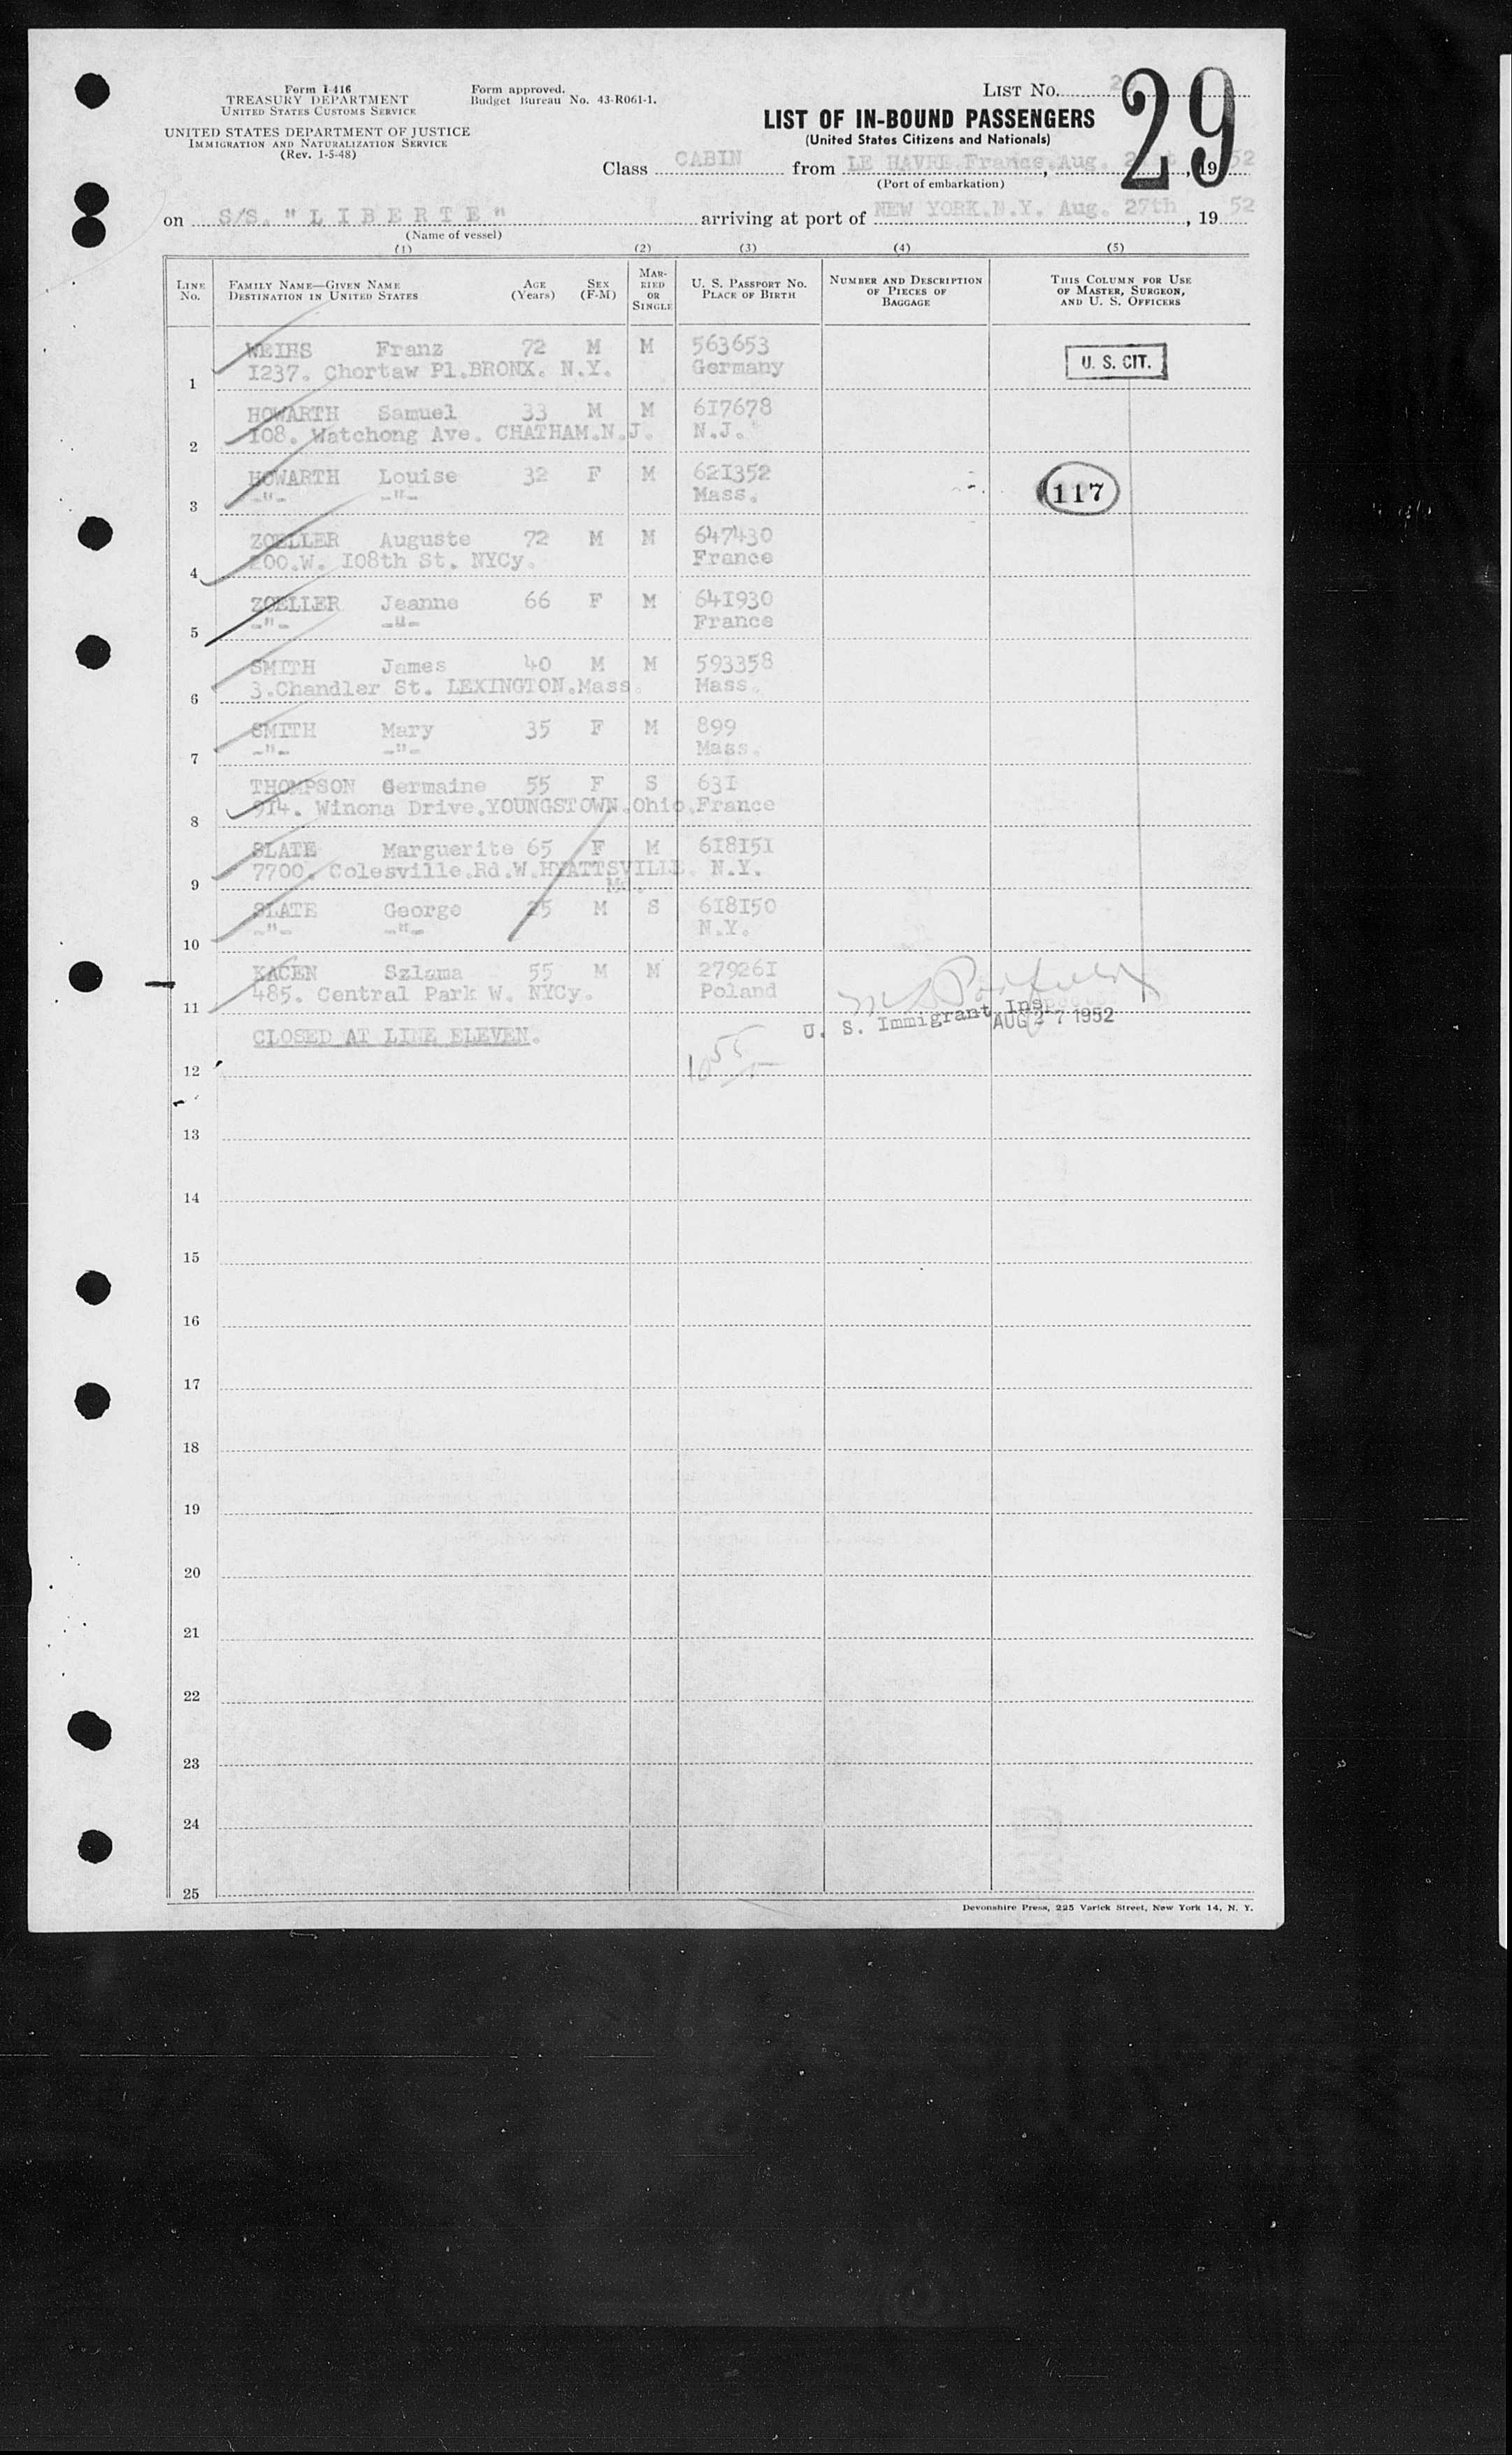 Form I-416
TREASURY DEPARTMENT
UNITED STATES CUSTOMS SERVICE
UNITED STATES DEPARTMENT OF JUSTICE
IMMIGRATION AND NATURALIZATION SERVICE
(Rev. 1-5-48)
Form approved.
Budget Bureau No. 43-R061-1.
LIST No. 29
LIST OF IN-BOUND PASSENGERS
(United States Citizens and Nationals)
Class CABIN from LE HAVRE.France, Aug. , 1952
(Port of embarkation)
on S/S. "L I B E R T E" arriving at port of NEW YORK.N.Y. Aug. 27th , 19 52
(Name of vessel)
(1) (2) (3) (4) (5)
LINE NO. FAMILY NAME—GIVEN NAME DESTINATION IN UNITED STATES AGE (Years) SEX (F-M) MARRIED OR SINGLE U. S. PASSPORT NO. PLACE OF BIRTH NUMBER AND DESCRIPTION OF PIECES OF BAGGAGE THIS COLUMN FOR USE OF MASTER, SURGEON, AND U. S. OFFICERS
WEIHS Franz 72 M M 563653 U. S. CIT.
1 1237. Chortaw Pl.BRONX. N.Y. Germany
HOWARTH Samuel 33 M M 617678
2 108. Watchong Ave. CHATHAM.N.J. N.J.
HOWARTH Louise 32 F M 621352 117
3 -"- -"- Mass.
ZOELLER Auguste 72 M M 647430
4 200.W. 108th St. NYCy. France
ZOELLER Jeanne 66 F M 641930
5 -"- -"- France
SMITH James 40 M M 593358
6 3.Chandler St. LEXINGTON.Mass. Mass.
SMITH Mary 35 F M 899
7 -"- -"- Mass.
THOMPSON Germaine 55 F S 631
8 914. Winona Drive.YOUNGSTOWN.Ohio.France
SLATE Marguerite 65 F M 618151
9 7700. Colesville.Rd.W.HYATTSVILLE. N.Y.
Md.
SLATE George 25 M S 618150
10 -"- -"- N.Y.
KACEN Szlama 55 M M 279261
11 485. Central Park W. NYCy. Poland
U. S. Immigrant Inspector
AUG 27 1952
CLOSED AT LINE ELEVEN.
1055
12
13
14
15
16
17
18
19
20
21
22
23
24
25
Devonshire Press, 225 Varick Street, New York 14, N. Y.